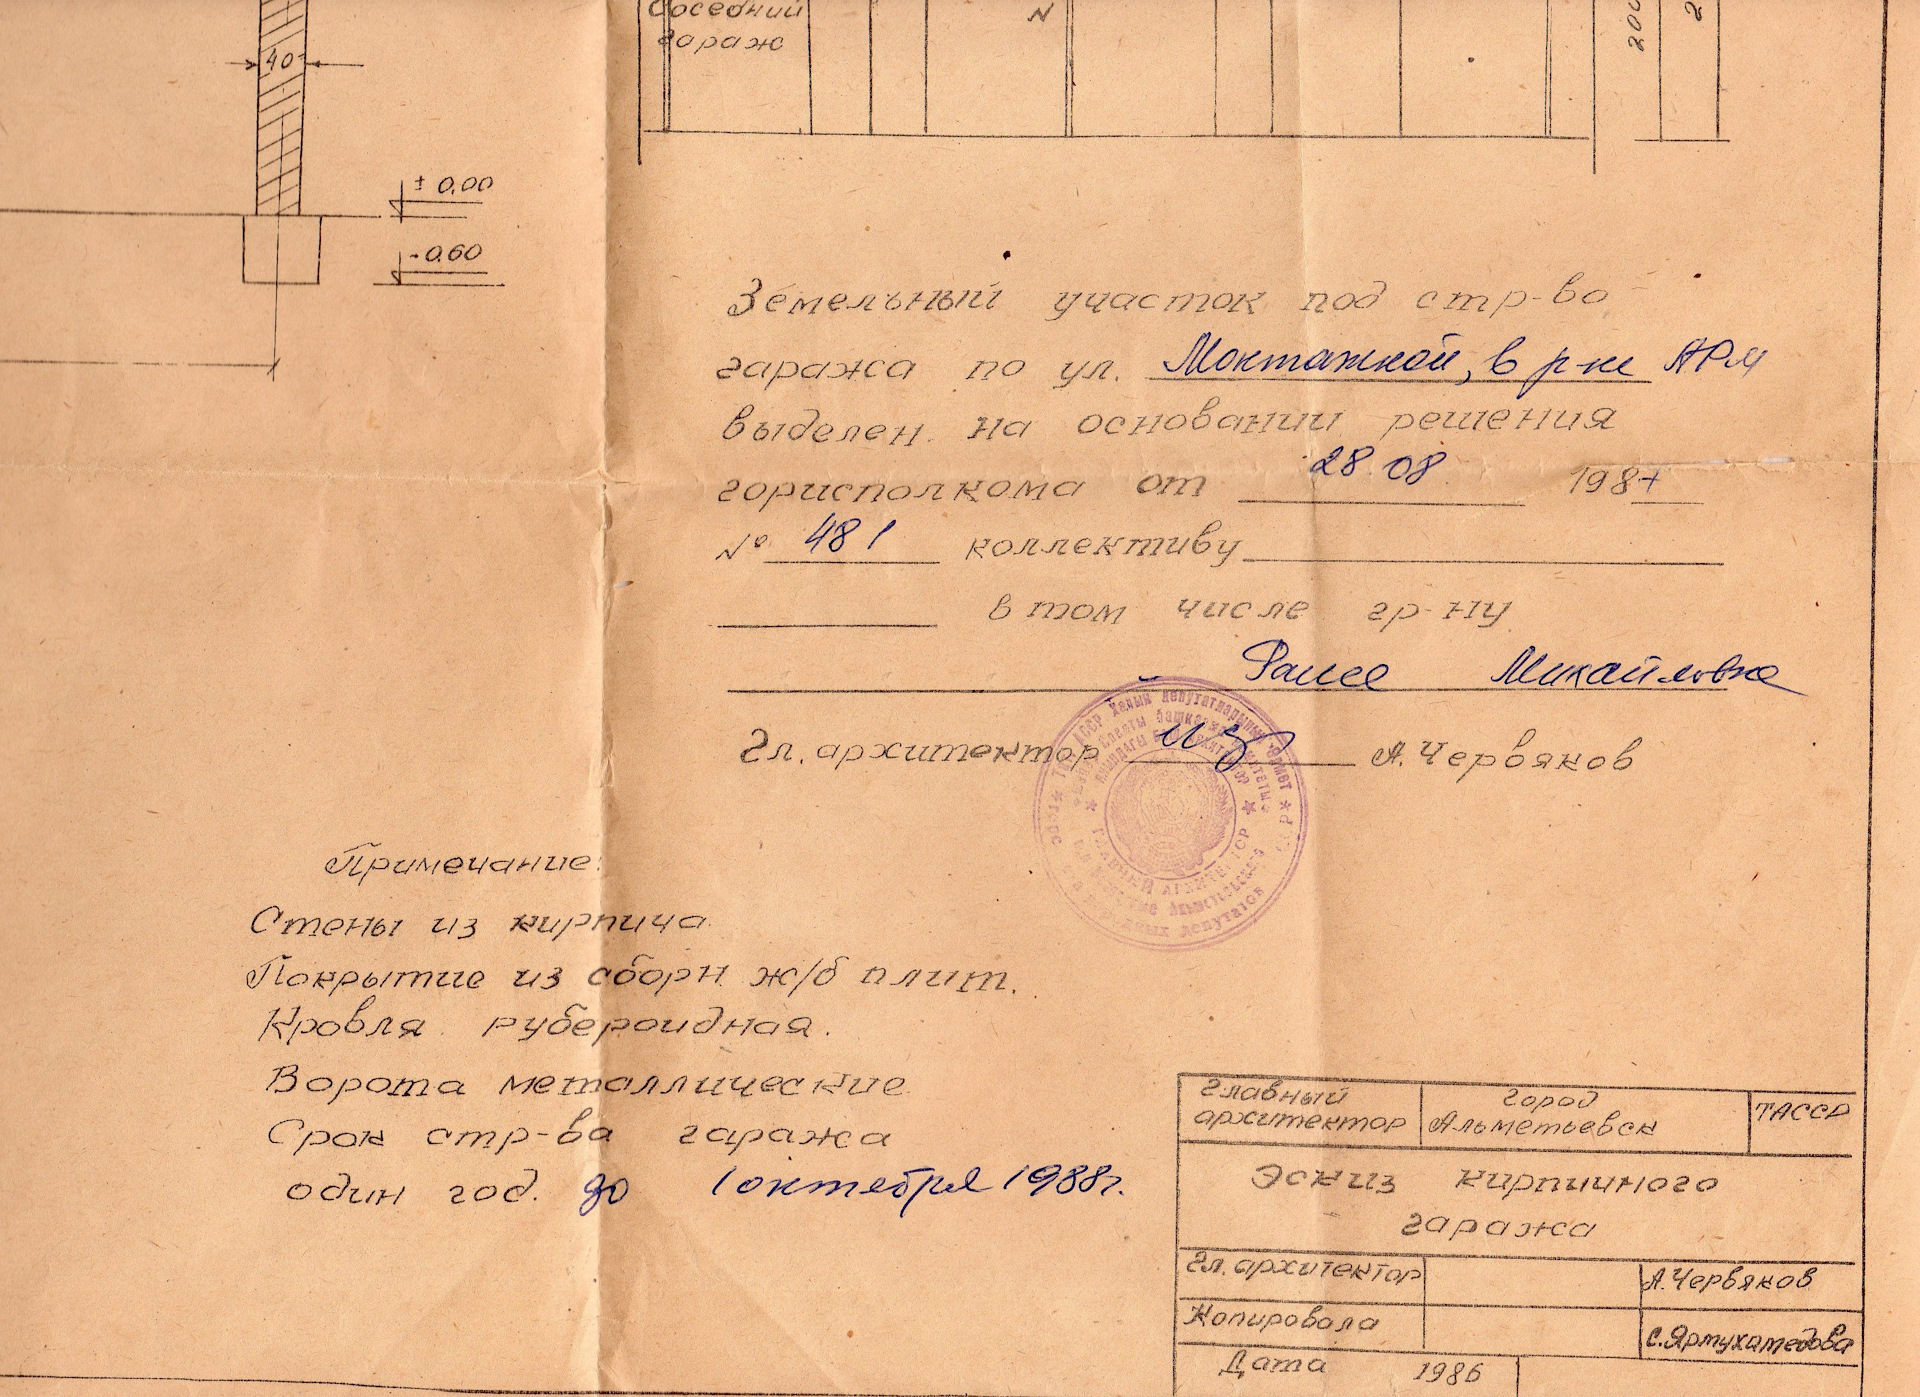 Соседний
гараж
N
40
200
2
± 0,00
-0,60
Земельный участок под стр-во
гаража по ул. Монтажной, в р-не АРМ
выделен на основании решения
горисполкома от 28.08 1987
№ 481 коллективу
в том числе гр-ну
Раисе Михайловне
Гл. архитектор А. Червяков
ГЛАВНЫЙ АРХИТЕКТОР
Примечание:
Стены из кирпича
Покрытие из сборн. ж/б плит.
Кровля рубероидная.
Ворота металлические
Срок стр-ва гаража
один год. до 1 октября 1988г.
Главный архитектор
город Альметьевск
ТАССР
Эскиз кирпичного
гаража
Гл. архитектор А. Червяков
Копировала С. Ярмухамедова
Дата 1986